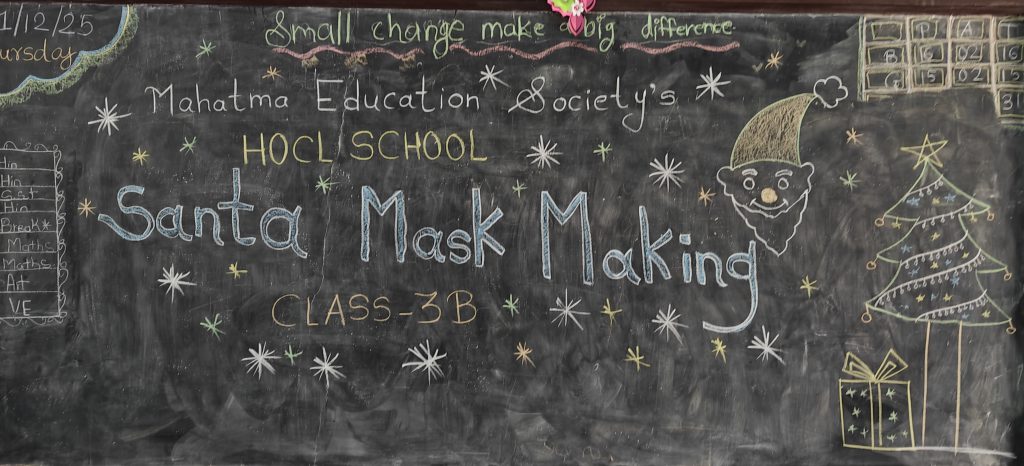 1/12/25
ursday
Small change make a big difference
Mahatma Education Society's
HOCL SCHOOL
Santa Mask Making
CLASS-3B
P A T
B 16 02 16
G 15 02 15
31
Hin
Hin
G.S.T
Hin
Break*
Maths
Maths
Art
VE